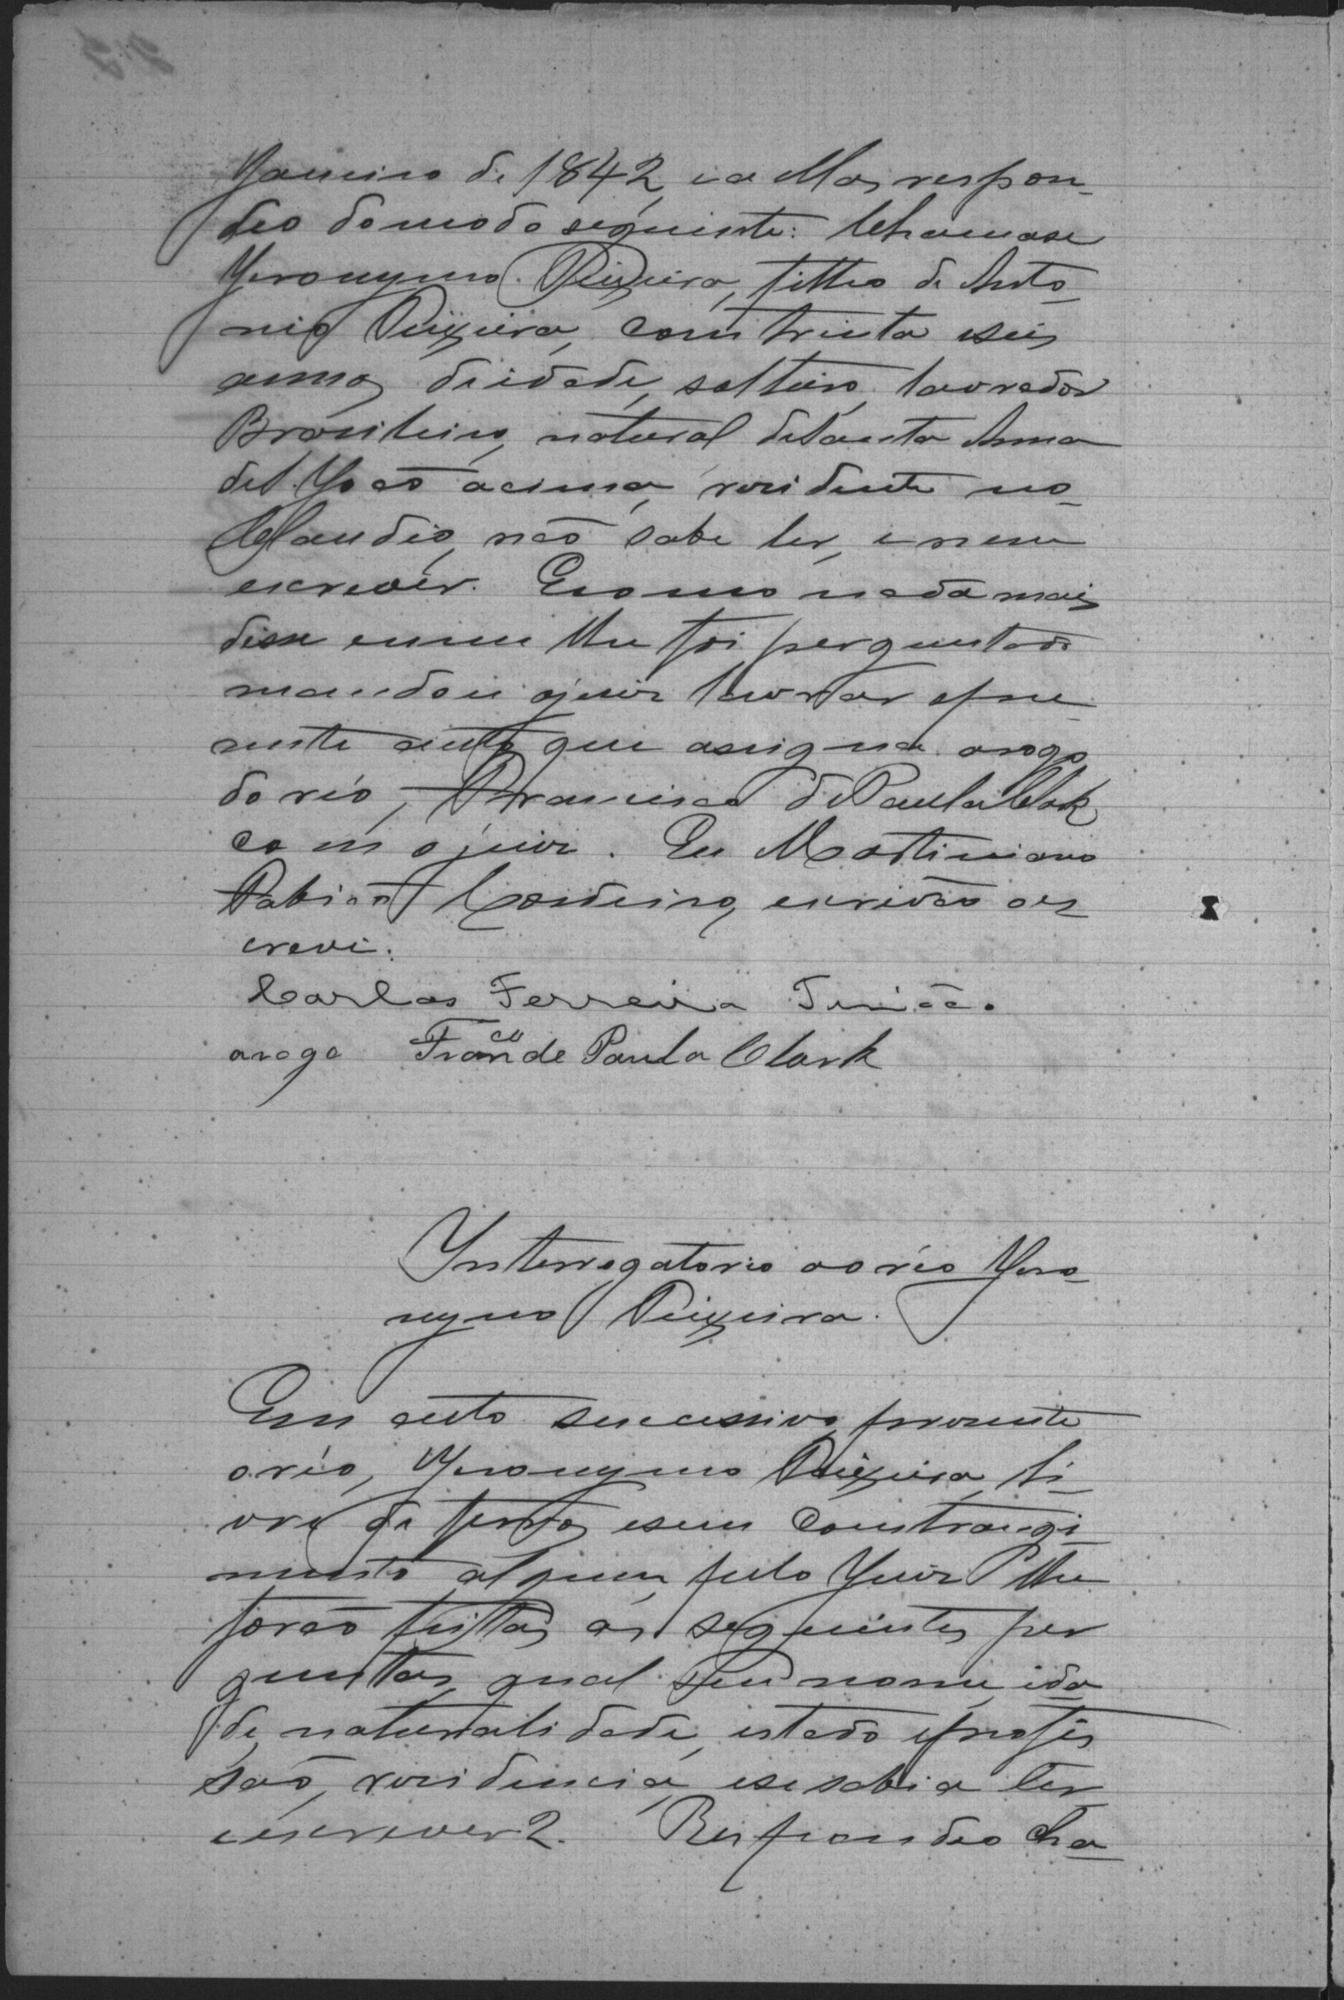 Janeiro de 1842, e a ellas respon-
deo do modo seguinte: Chamase
Jeronymo Teixeira, filho de Anto-
nio Teixeira, com trinta e seis
annos de idade, solteiro, lavrador
Brasileiro, natural de Santa Anna
de S. João acima, residente no
Claudio, não sabe ler, e nem
escrever. E como nada mais
disse e nem lhe foi perguntado
mandou o juiz lavrar o pre-
sente auto que assigna arogo
do réo, Francisco de Paula Clark
com o juiz. Eu Martiniano
Cordeiro, escrivão o es
crevi.
Carlos Ferreira
arogo Fran.co de Paula Clark
Interrogatorio ao réo Jero-
nymo Teixeira.
Em acto successivo, presente
o réo, Jeronymo Teixeira, li-
vre de ferros e sem constrangi-
mento algum, pelo Juiz lhe
forão feitas as seguintes per
guntas, qual seu nome, ida
de, naturalidade, estado e profis
são, residencia, e se sabia ler
e escrever? Respondeo cha-